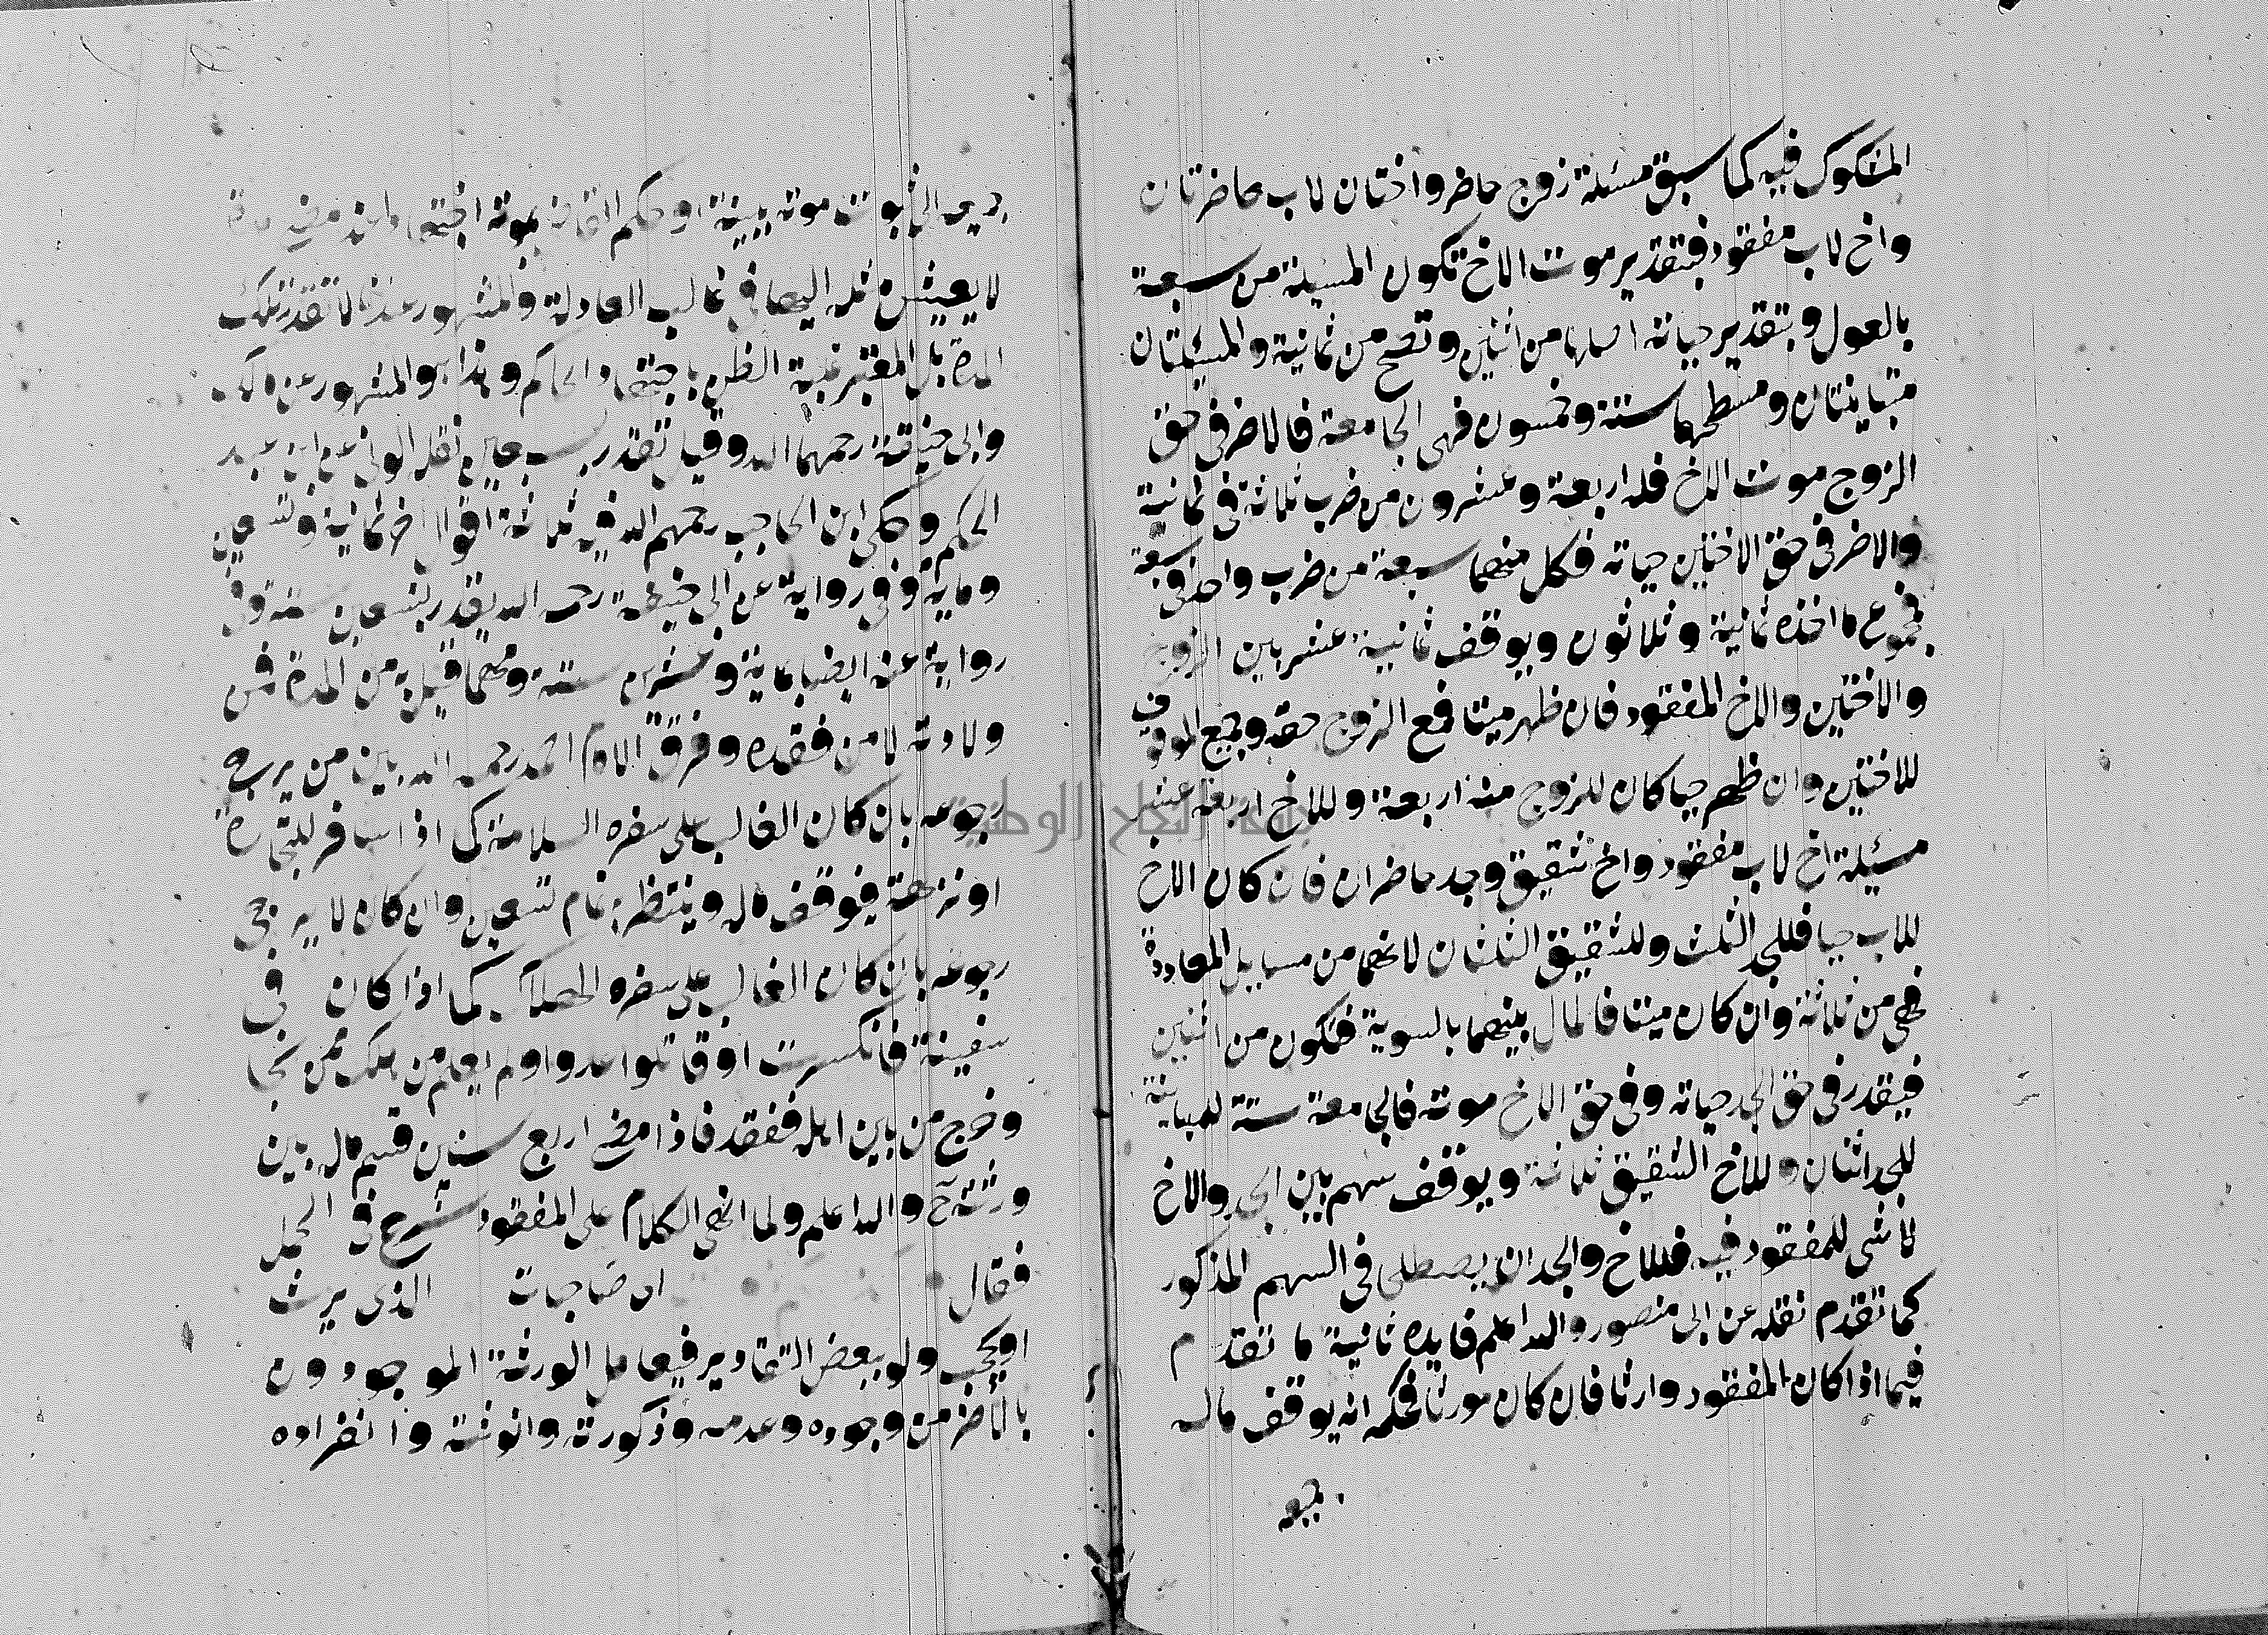 المشكوك فيه كما سبق مسئلة زوج حاضر واختان لاب حاضرتان
واخ لاب مفقود فبتقدير موت الاخ تكون المسئلة من سبعة
بالعول وبتقدير حياته اصلها من اثنين وتصح من ثمانية والمسئلتان
متباينتان ومسطحهما ستة وخمسون فهى الجامعة فالاضر فى حق
الزوج موت الاخ فله اربعة وعشرون من ضرب ثلاثة فى ثمانية
والاضر فى حق الاختين حياته فكل منهما سبعة من ضرب واحد فى سبعة
فمجموع ما اخذه ثمانية وثلاثون ويوقف ثمانية عشر بين الزوج
والاختين والاخ المفقود فان ظهر ميتا فمع الزوج حقه وجميع الموقوف
للاختين وان ظهر حيا كان للزوج منه اربعة وللاخ اربعة عشر
جامعة النجاح الوطنية
مسئلة اخ لاب مفقود واخ شقيق وجد حاضران فان كان الاخ
للاب حيا فللجد الثلث وللشقيق الثلثان لانهما من مسايل المعاددة
فهى من ثلاثة وان كان ميتا فالمال بينهما بالسوية فتكون من اثنين
فيقدر فى حق الجد حياته وفى حق الاخ موته فالجامعة ستة للمباينة
للجد اثنان وللاخ الشقيق ثلاثة ويوقف سهم بين الجد والاخ
لا شى للمفقود فيه فللاخ والجد ان يصطلحا فى السهم المذكور
كما تقدم نقله عن ابى منصور والله اعلم فايده ثانية ما تقدم
فيما اذا كان المفقود وارثا فان كان مورثا فحكمه انه يوقف ماله
جميعه
جميعه الى ثبوت موته ببينة او حكم القاضى بموته اجتهادا عند مضى مدة
لا يعيش مثله اليها فى غالب العادة والمشهور عندنا لا تقدر تلك
المدة بل المعتبر غلبة الظن باجتهاد الحاكم وهذا هو المشهور عن مالك
وابى حنيفة رحمهما الله وقيل تقدر بسبعين نقله الونى عن ابن عبد
الحكم وحكى ابن الحاجب رحمهم الله فيه ثلاثة اقوال اخر ثمانية وتسعين
وماية وفى رواية عن ابى حنيفة رحمه الله يقدر بتسعين سنة وفى
رواية عنه ايضا بماية وعشرين سنة ومهما قيل به من المدة فمن
ولادته لا من فقده وفرق الامام احمد رحمه الله بين من يرجى
رجوعه بان كان الغالب على سفره السلامة كما اذا سافر للتجارة
او نزهة فيوقف ماله وينتظر به تمام تسعين وان كان لا يرجى
رجوعه بان كان الغالب على سفره الهلاك كما اذا كان فى
سفينة فانكسرت او قاتلوا عدوا ولم يعلم من هلك ممن نجا
وخرج من بين اهله ففقد فاذا مضى اربع سنين قسم ماله بين
ورثته ح والله اعلم ولما انهى الكلام على المفقود شرع فى الحمل
فقال الذى يرث
او يحجب ولو ببعض التقادير فيعامل الورثة الموجودون
بالاضر من وجوده وعدمه وذكورته وانوثته وانفراده